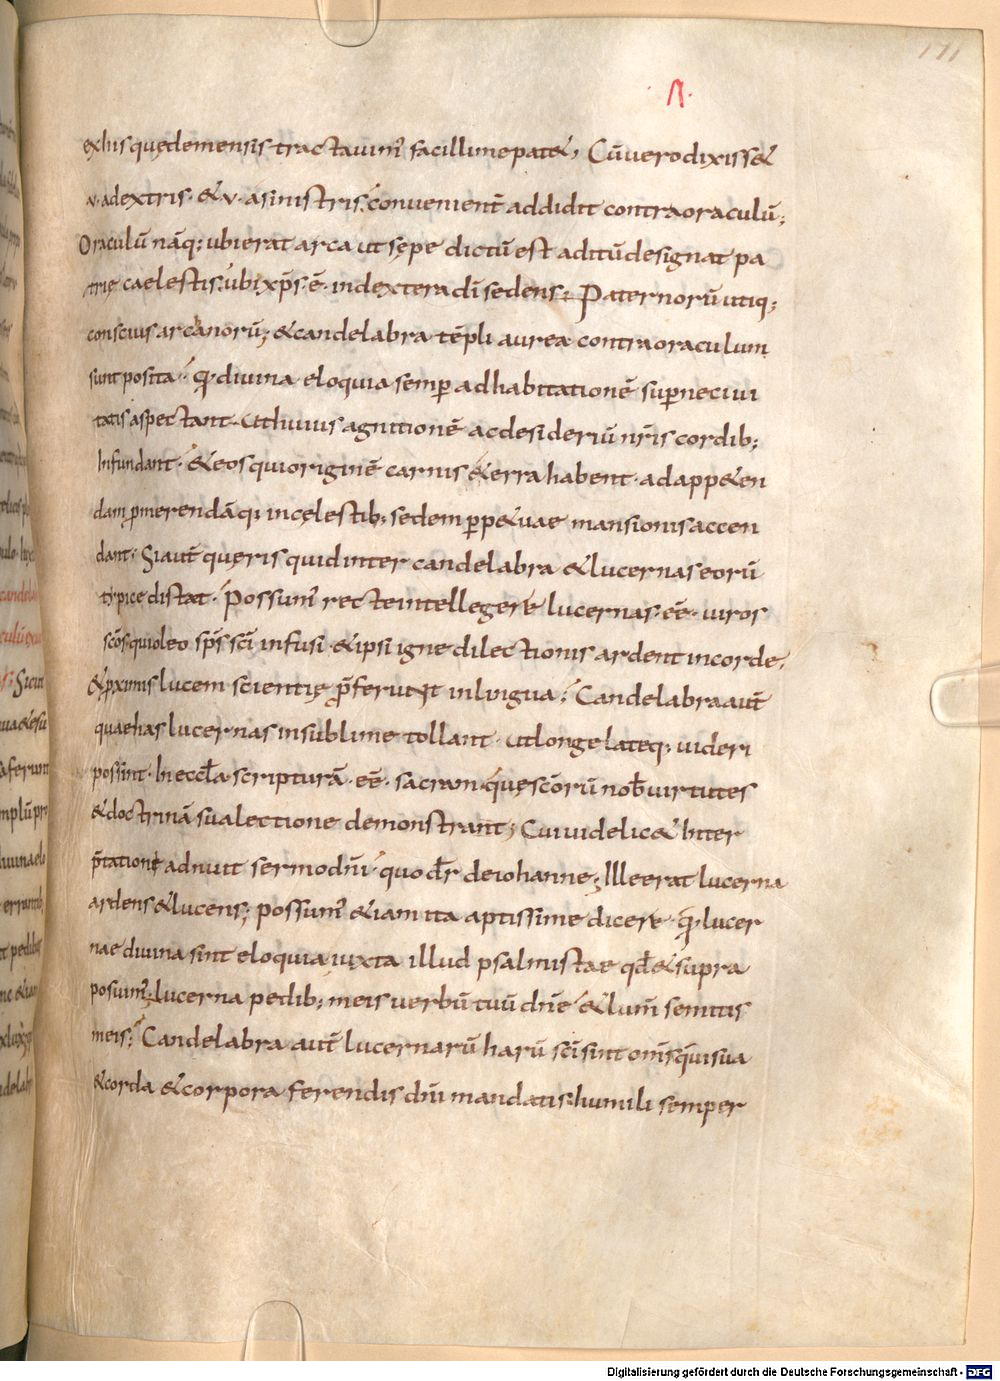 171
Λ·
exhis quę demensis tractauim̄ facillime patet; Cū uero dixisset
·v· adextris· & ·v· asinistris; conuenient̄ addidit contra oraculū;
Oraculū nāq; ubi erat arca ut sępe dictū est aditū designat pa
trię caelestis; ubi xp̄s ē· indextera dī sedens; Paternorū utiq;
conscius arcanorū; & candelabra tēpli aurea contra oraculum
sunt posita· qꝫ diuina eloquia semꝑ ad habitationē suꝑnę ciui
tatis aspectant· Ut huius agnitionē ac desideriū nr̄is cordib;
Infundant· & eos qui originē carnis & erra habent· ad appeten
dam ꝓmerendāq; incęlestib; sedem ꝑpetuae mansionis accen
dant· Si aut̄ quęris quid inter candelabra & lucernas eorū
typice distat· Possum̄ recte intellegere lucernas· eē· uiros
sc̄os qui oleo sp̄s sc̄i infusi & ipsi igne dilectionis ardent incorde;
& ꝓximis lucem scientię p̄ferunt inlingua; Candelabra aut̄
quae has lucernas insublime tollant· ut longe lateq; uideri
possint· In eccl̄a scripturā· eē· sacram· quę sc̄orū nob̄ uirtutes
& doctrinā sua lectione demonstrant; Cui uidelicet Inter
p̄tationi adnuit sermo dn̄i· quo d̄r de iohanne; Ille erat lucerna
ardens & lucens; possum̄ etiam ita aptissime dicere· qꝫ lucer
nae diuina sint eloquia iuxta illud psalmistae qd̄ & supra
posuim̄; lucerna pedib; meis uerbū tuū dn̄e & lum̄ semitis
meis; Candelabra aut̄ lucernarū harū sc̄i sint om̄s qui sua
& corda & corpora ferendis dn̄i mandatis humili semper
Digitalisierung gefördert durch die Deutsche Forschungsgemeinschaft - DFG